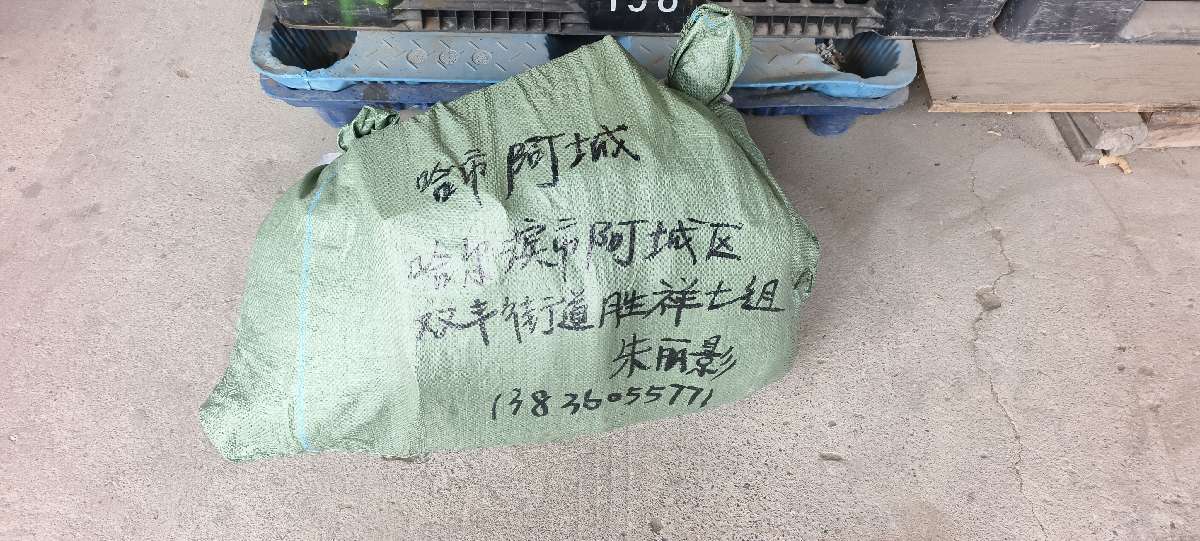 198
哈市阿城
哈尔滨市阿城区
双丰街道胜祥七组
朱丽影
13836055771